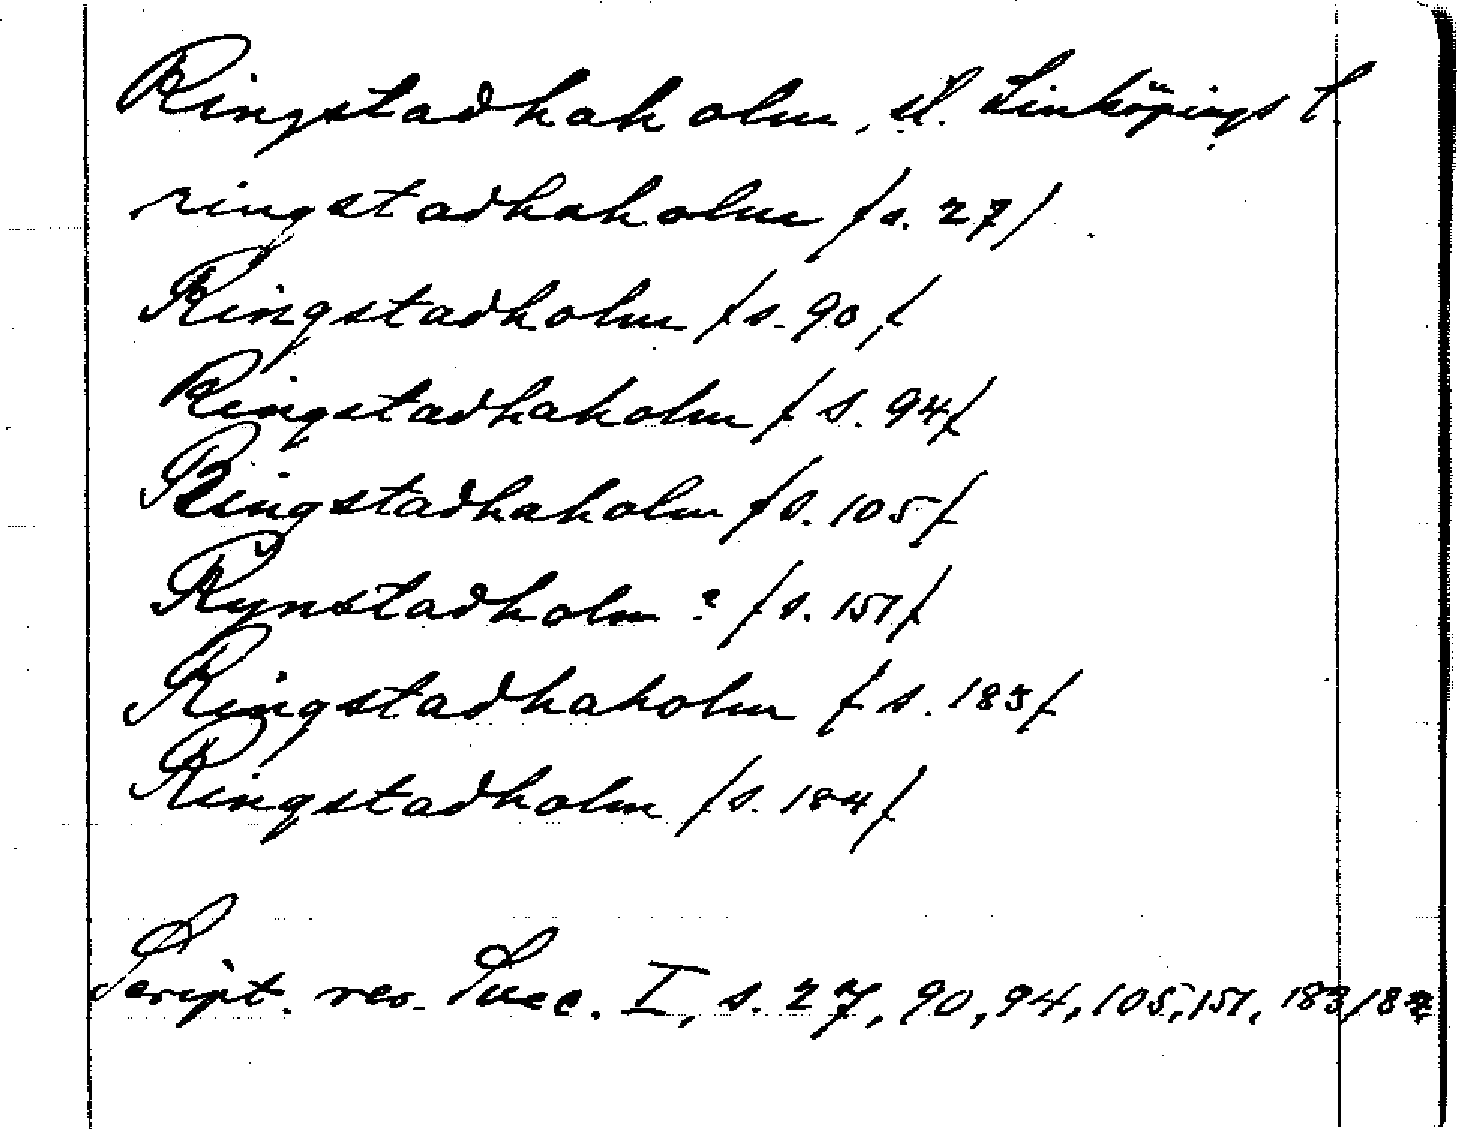 Ringstadhaholm, sl. Linköpings l.
ringstadhaholm /s. 27/
Ringstadholm /s. 90/
Ringstadhaholm /s. 94/
Ringstadhaholm /s. 105/
Rynstadholm ? /s. 151/
Ringstadhaholm /s. 183/
Ringstadholm /s. 184/
Script. rer. Suec. I, s. 27, 90, 94, 105, 151, 183, 184